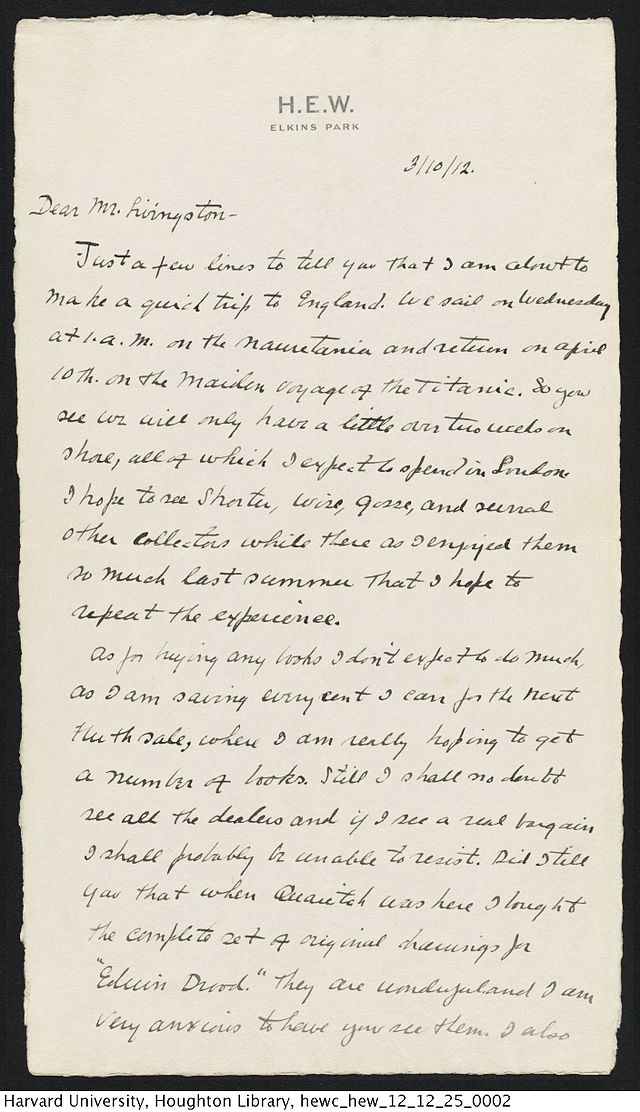 H.E.W.
ELKINS PARK
3/10/12.
Dear Mr. Livingston-
Just a few lines to tell you that I am about to
make a quick trip to England. We sail on Wednesday
at 1. a.m. on the Mauretania and return on april
10th. on the maiden voyage of the Titanic. So you
see we will only have a little over two weeks on
shore, all of which I expect to spend in London.
I hope to see Shorter, Wise, Gosse, and several
other collectors while there as I enjoyed them
so much last summer that I hope to
repeat the experience.
As for buying any books I don't expect to do much,
as I am saving every cent I can for the next
Huth sale, where I am really hoping to get
a number of books. Still I shall no doubt
see all the dealers and if I see a real bargain
I shall probably be unable to resist. Did I tell
you that when Quaritch was here I bought
the complete set of original drawings for
"Edwin Drood." They are wonderful and I am
very anxious to have you see them. I also
Harvard University, Houghton Library, hewc_hew_12_12_25_0002